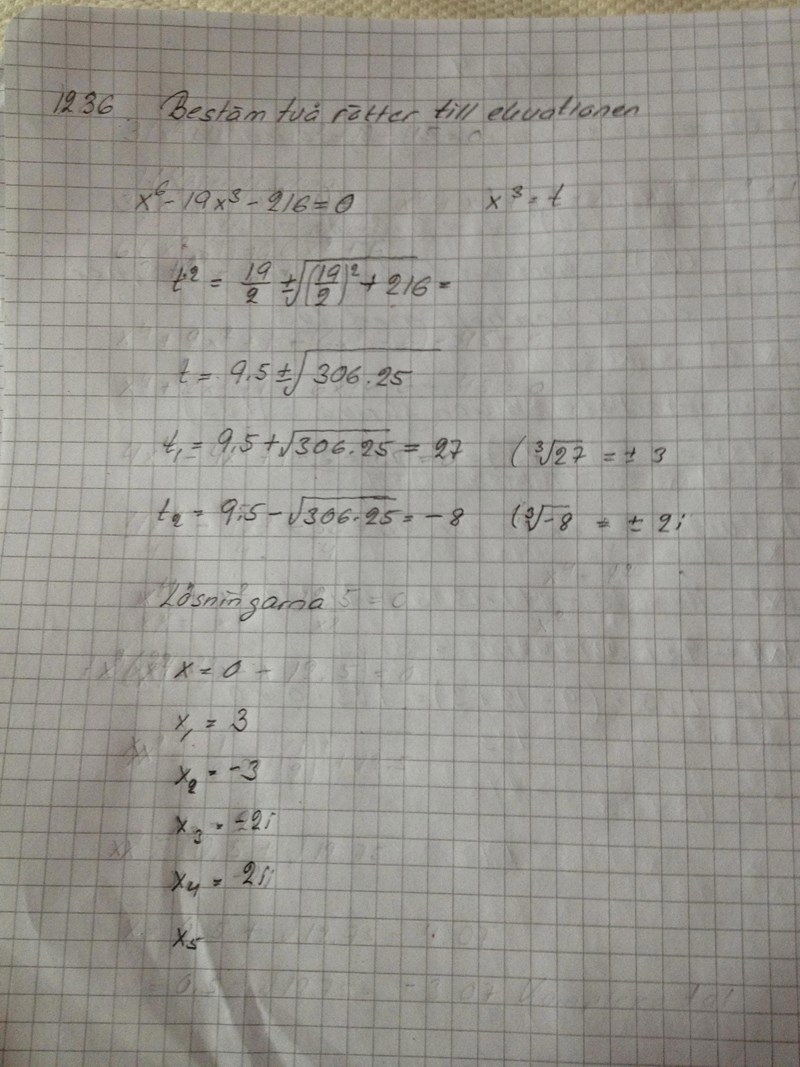 1236 Bestäm två rötter till ekvationen
x⁶ - 19x³ - 216 = 0 x³ = t
t² = 19/2 ± √((19/2)² + 216 =
t = 9.5 ± √306.25
t₁ = 9,5 + √306.25 = 27 (³√27 = ± 3
t₂ = 9,5 - √306.25 = -8 (³√-8 = ± 2i
Lösningarna
x = 0
x₁ = 3
x₂ = -3
x₃ = ±2i
x₄ = 2i
x₅